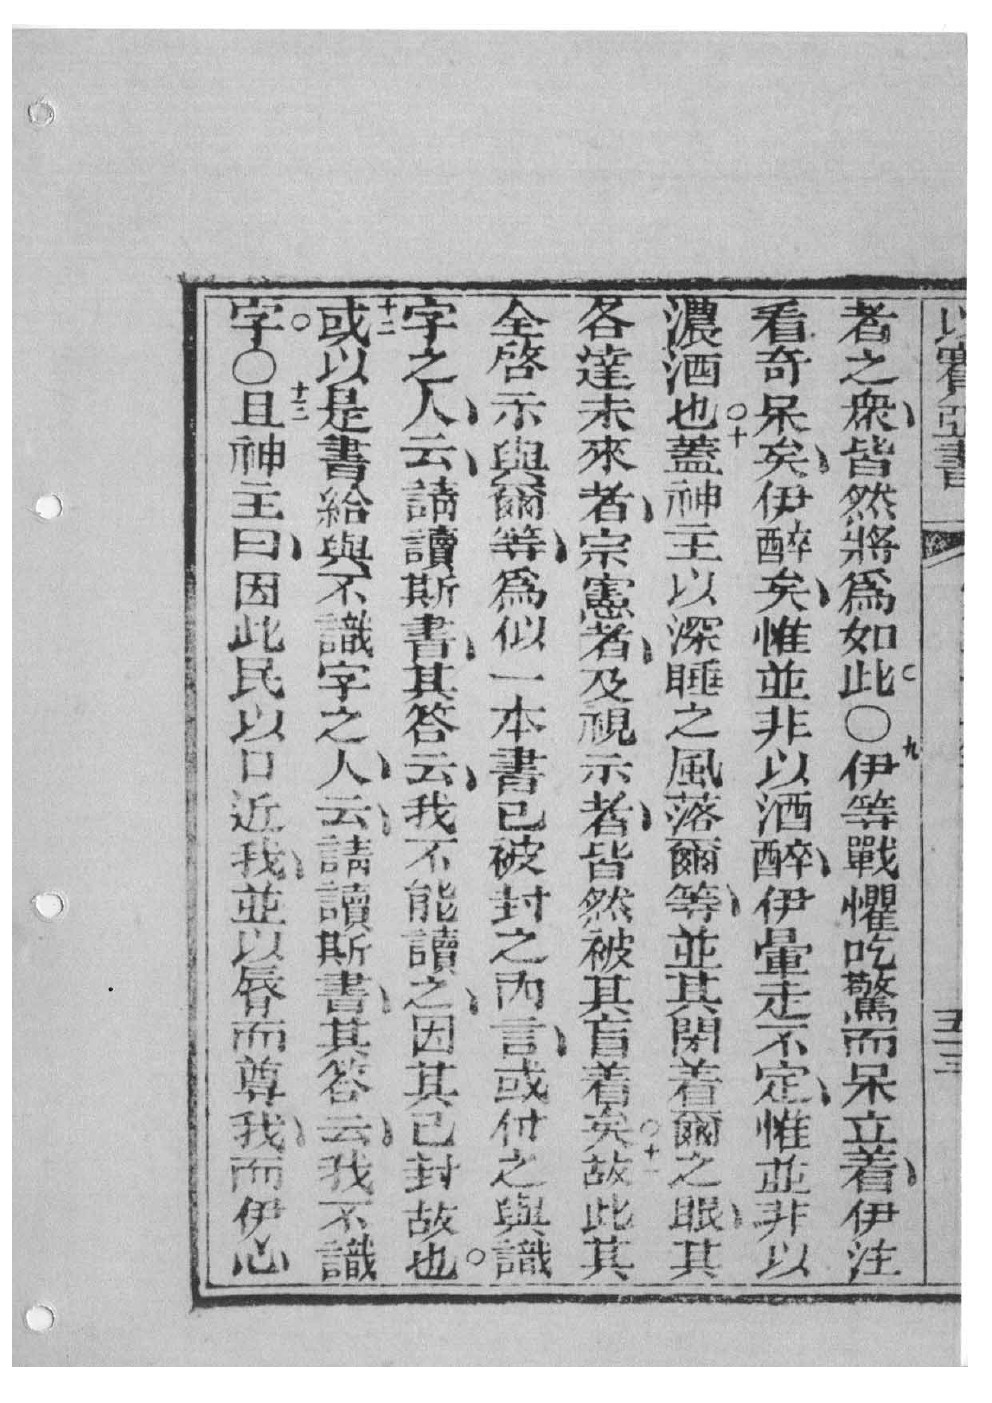 以賽亞書
五十三
者之衆皆然將爲如此〇九伊等戰懼吃驚而呆立着伊注
看奇呆矣伊醉矣惟並非以酒醉伊暈走不定惟並非以
濃酒也〇十蓋神主以深睡之風落爾等並其閉着爾之眼其
各達未來者宗憲者及視示者皆然被其盲着矣〇十一故此其
全啓示與爾等爲似一本書已被封之內言或付之與識
字之人云請讀斯書其答云我不能讀之因其已封故也〇
十二或以是書給與不識字之人云請讀斯書其答云我不識
字〇十三且神主曰因此民以口近我並以唇而尊我而伊心